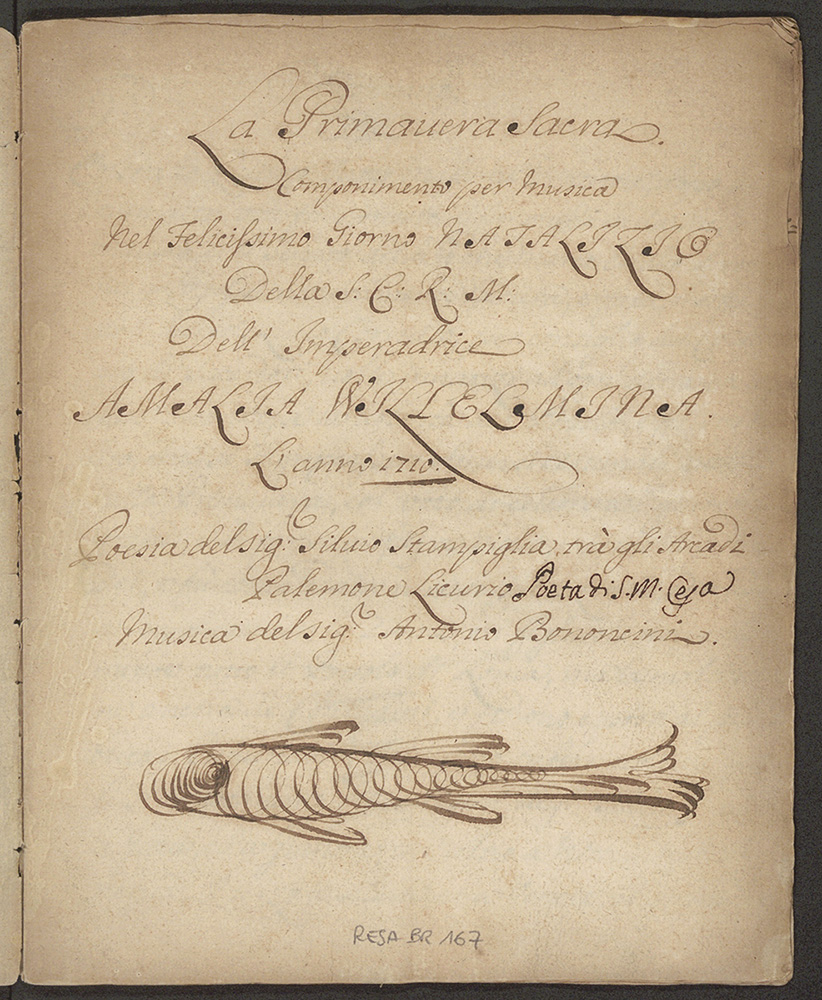 La Primauera Sacra.
Componimento per Musica
Nel Felicissimo Giorno NATALIZIO
Della S: C: R: M:
Dell' Imperadrice
AMALIA WILLELMINA.
L'anno 1710.
Poesia del Sig.r Siluio Stampiglia trà gli Arcadi
Palemone Licurio Poeta di S. M. Cesa
Musica del Sig.r Antonio Bononcini.
RESA BR 167